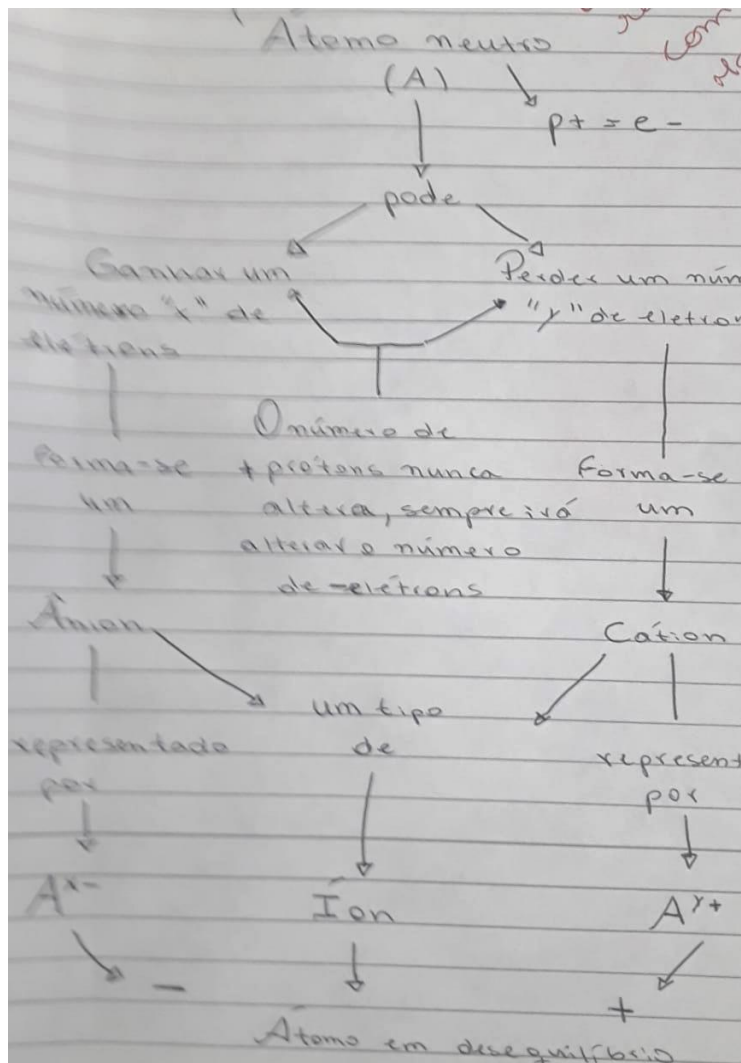 Átomo neutro
(A)
p+ = e-
pode
Ganhar um
número "x" de
elétrons
Perder um núm
"y" de eletron
O número de
+ prótons nunca
altera, sempre irá
alterar o número
de -elétrons
Forma-se
um
Forma-se
um
Ânion
Cátion
um tipo
de
representado
por
represent
por
A^x-
Íon
A^y+
-
+
Átomo em desequilíbrio
com